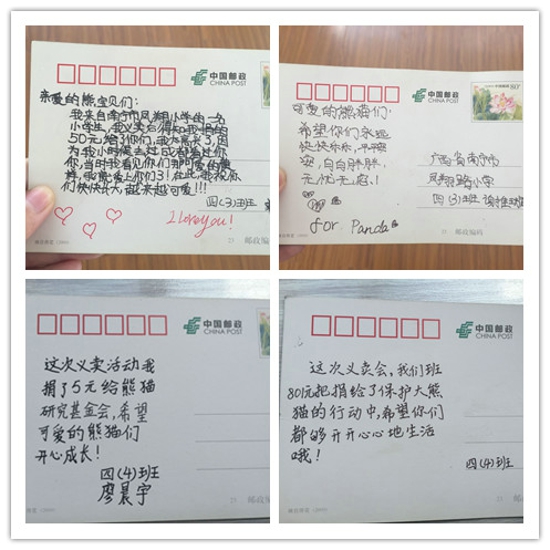 中国邮政
CHINA POST
亲爱的熊宝贝们:
我来自南宁市凤翔小学的一名
小学生,我义卖后得知我捐的
50元给了你们,我太高兴了,因
为我小时候去过成都看过
你,当时我看见你们那可爱的模
样,我就爱上你们了!在此,我祝你
们快快长大,越来越可爱!!!
四(3)班
I love you!
邮政编
中国邮政
CHINA POST
80分
可爱的熊猫们:
希望你们永远
快快乐乐,平平安
安,白白胖胖,
无忧无虑!
for Panda
广西省南宁市
凤翔路小学
四(3)班
邮政编码
中国邮政
CHINA POST
这次义卖活动我
捐了5元给熊猫
研究基金会,希望
可爱的熊猫们
开心成长!
四(4)班
廖晨宇
邮政编码
中国邮政
CHINA POST
这次义卖会,我们班
801元把捐给了保护大熊
猫的行动中,希望你们
都够开开心心地生活
哦!
四(4)班
邮政编码